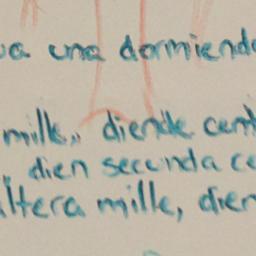 ua una dormiend
mille,, diende cent
dien secunda ce
altera mille, dien